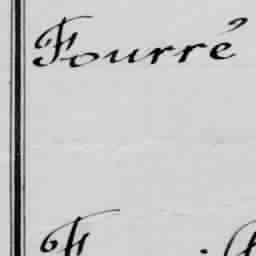 Fourré